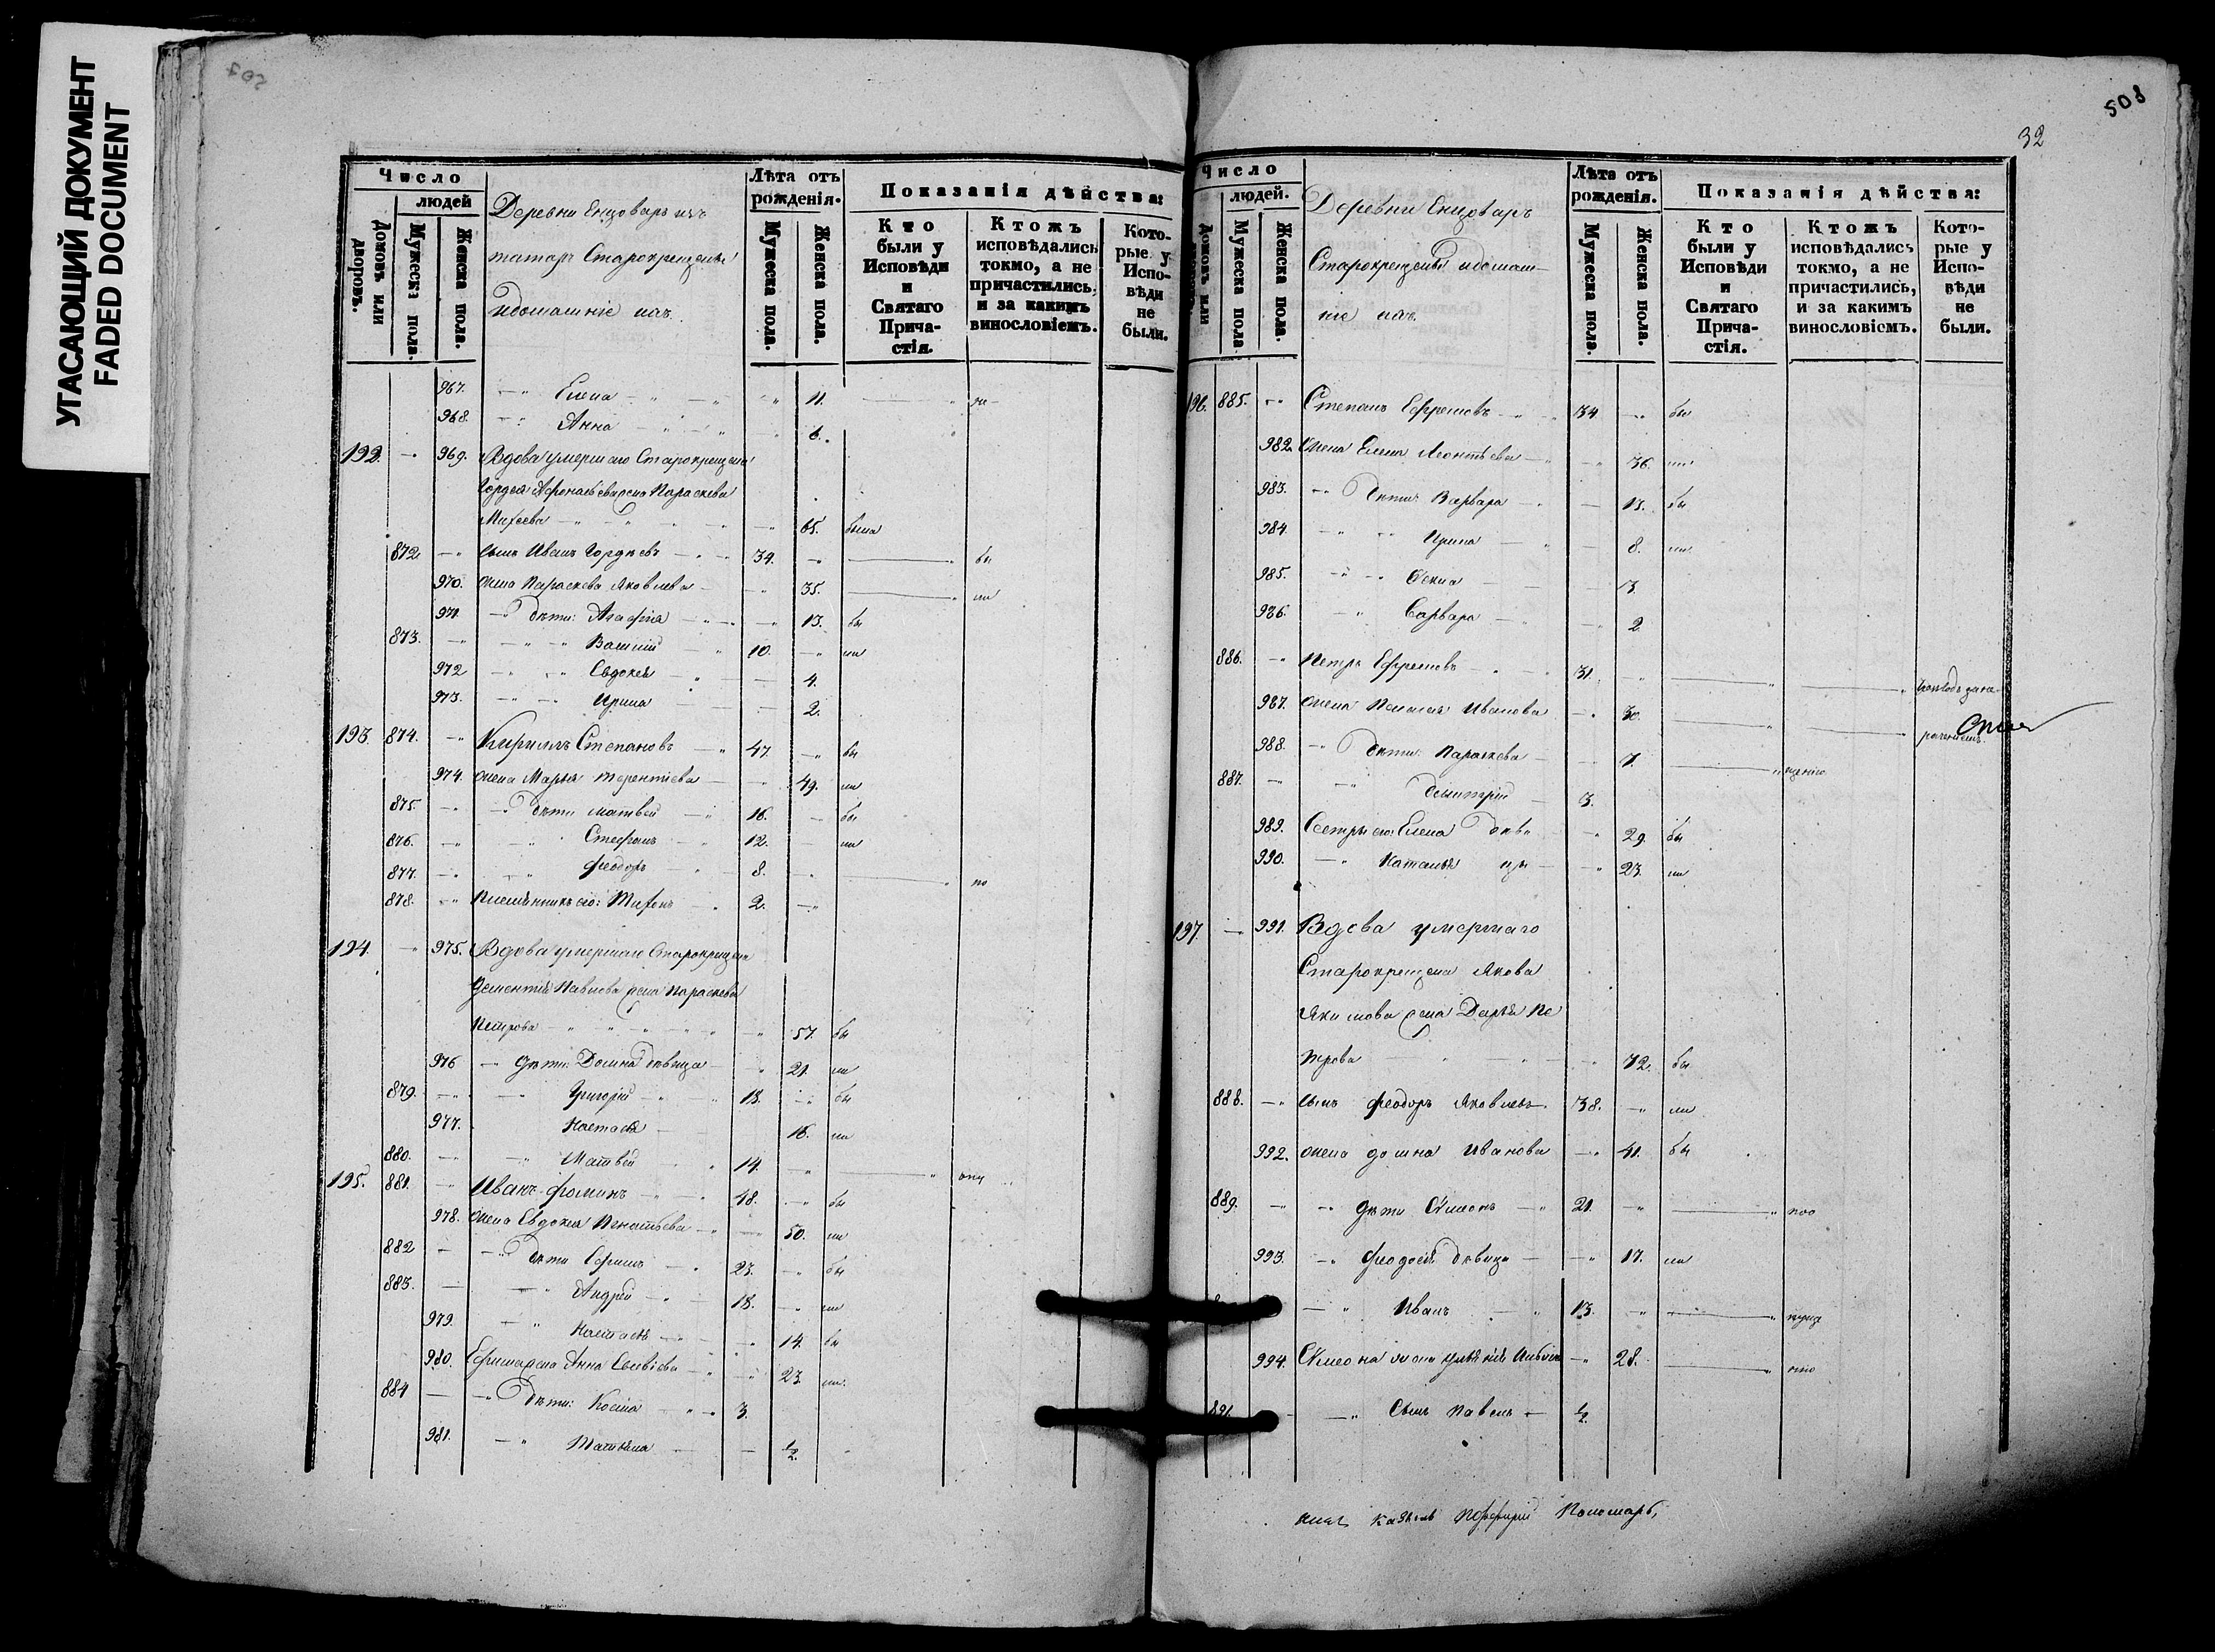 УГАСАЮЩИЙ ДОКУМЕНТ
FADED DOCUMENT
Число
людей
Домовъ или дворовъ.
Мужеска пола.
Женска пола.
Деревни Енцоваръ изъ
татаръ Старокрещены
идомашніе ихъ
Лѣта отъ рожденія.
Мужеска пола.
Женска пола.
Показанія дѣйства:
Кто были у Исповѣди и Святаго Причастія.
Ктожъ исповѣдались токмо, а не причастились, и за какимъ винословіемъ.
Которые у Исповѣди не были.
967. Елена 11.
968. Анна 6.
192. 969. Вдова умершаго Старокрещена
Гордея Афонасьева жена Параскева
Матѳеева 65. была
872 сынъ Иванъ Гордѣевъ 34. бы
970. жена Параскева Яковлева 35. ли
971. дѣти: Агафія 13. бы
873. Василій 10. ли
972 Евдокея 4.
973. Ирина 2.
193. 874. Кирилъ Степановъ 47. бы
974. жена Марья Терентіева 49. ли
875. дѣти Матвей 16. бы
876. Стефанъ 12. ли
877. Феодоръ 8. по
878. Племянникъ его: 2.
194. 975. Вдова умершаго Старокрещена
Дементія Павлова жена Параскева
Петрова 57. бы
976 Дѣти: Домна дѣвица 21. ли
879. Григорій 18. бы
977. Настасья 16. ли
880. Матвей 14.
195. 881. Иванъ Фоминъ 48. бы
978. жена Евдокея Игнатьева 50. ли
882 дѣти Ефимъ 23. бы
883. Андрей 18. ли
979. Настасья 14. бы
980. Ефима жена Анна 23. ли
884 дѣти: Косма 3.
981. Татьяна ½.
508
32
Число
людей.
Домовъ или
Мужеска пола
Женска пола.
Деревни Енцоваръ
Старокрещены идомаш-
ніе ихъ
Лѣта отъ рожденія.
Мужеска пола.
Женска пола.
Показанія дѣйства:
Кто были у Исповѣди и Святаго Причастія.
Ктожъ исповѣдались токмо, а не причастились, и за какимъ винословіемъ.
Которые у Исповѣди не были.
196. 885. Степанъ Ефремовъ 34 бы
982. жена Елена Леонтьева 36. ли
983. дѣти: Варвара 13. бы
984. Ирина 8. ли
985. 3
986. Варвара 2
886. Петръ Ефремовъ 31.
987. жена Пелагея Иванова 30.
988. дѣти: Параскева 7.
887. Димитрій 3.
989. Сестры его: Елена дѣви 29. бы
990. Наталья цы 23. ли
197. 991. Вдова умершаго
Старокрещена Якова
Якимова жена Дарья Пе
трова 72. бы
888. сынъ Феодоръ Яковлевъ 38. ли
992. жена Домна Иванова 41. бы
889. Дѣти Симеонъ 21.
993. Феодосія дѣвица 17. ли
Иванъ 13.
994. Симеона жена 28.
891. Сынъ Павелъ ½.
Порфирій Пономарь,